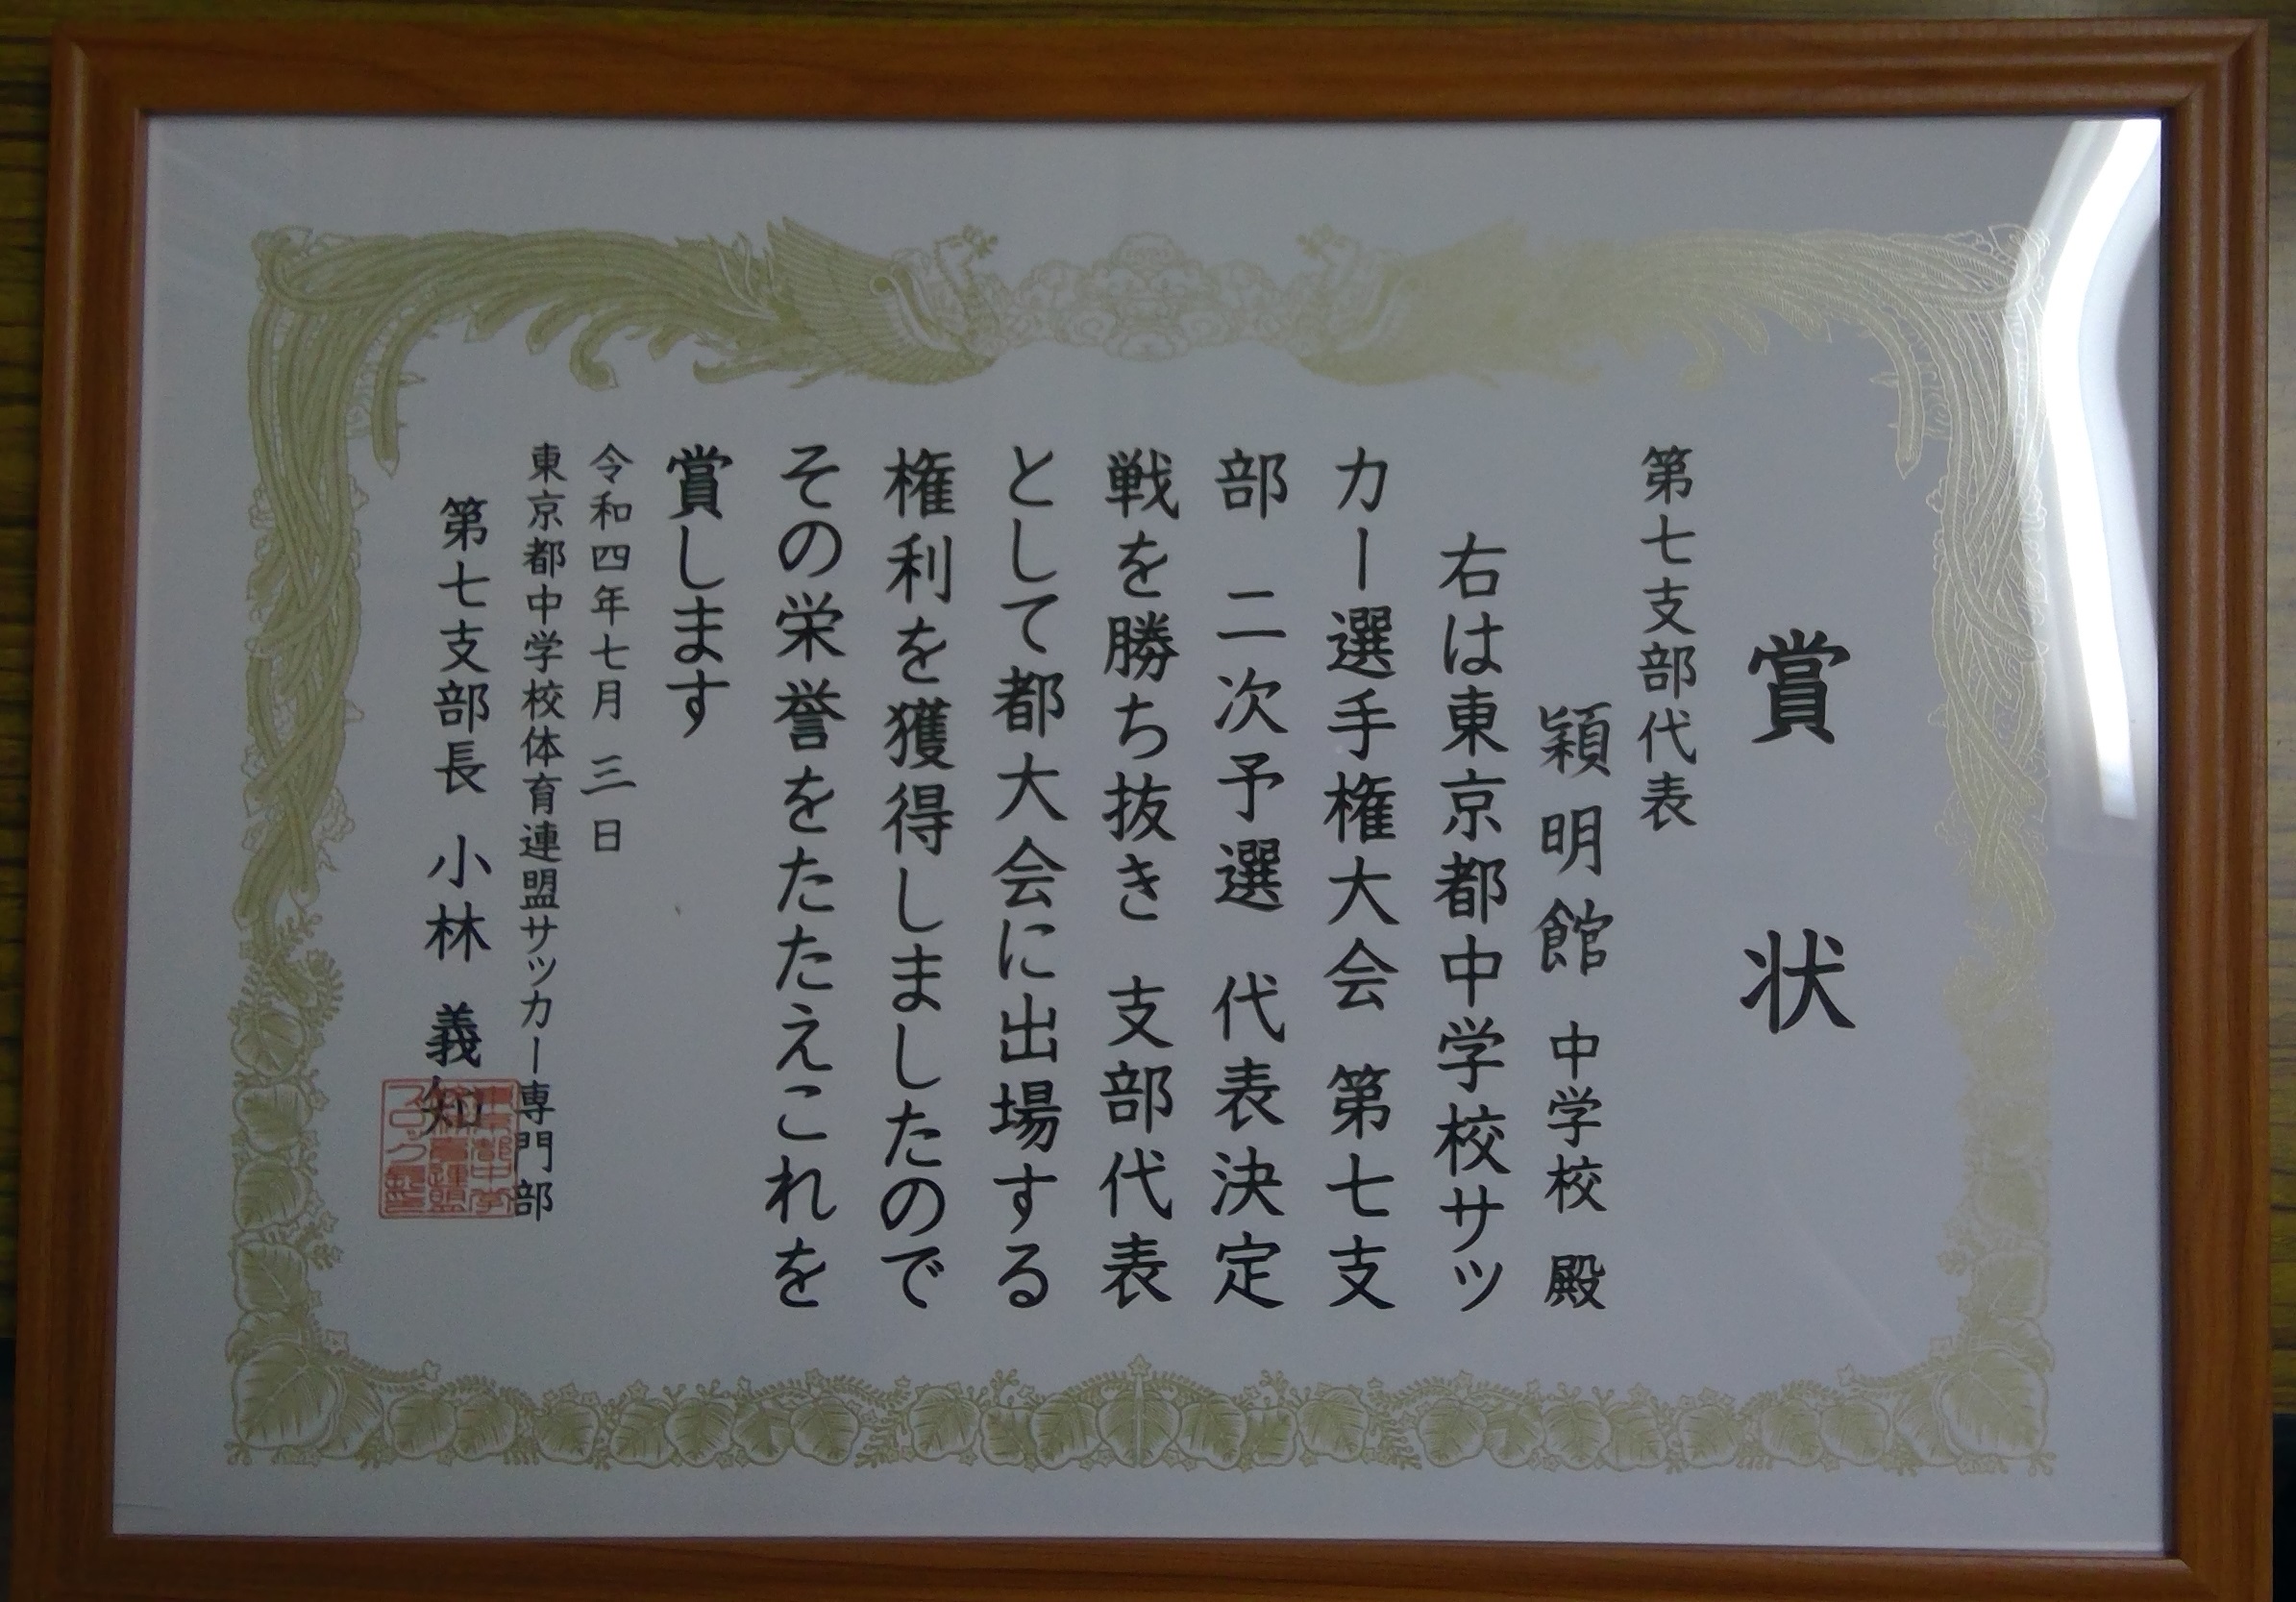 賞状
第七支部代表
穎明館 中学校 殿
右は東京都中学校サッ
カー選手権大会 第七支
部 二次予選 代表決定
戦を勝ち抜き 支部代表
として都大会に出場する
権利を獲得しましたので
その栄誉をたたえこれを
賞します
令和四年七月 三日
東京都中学校体育連盟サッカー専門部
第七支部長 小林 義知